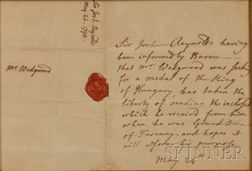 Sir Josh Reynolds
May 24. 1790
Mr Wedgwood
Sir Joshua Reynolds having
been informed by Baron
that Mr Wedgwood was
for a medal of the King
of Hungary, has taken the
liberty of sending the inclosed
which he received from him
when he was Grand Duke
of Tuscany, and hopes it
will his purpose
May 24
SKINNER